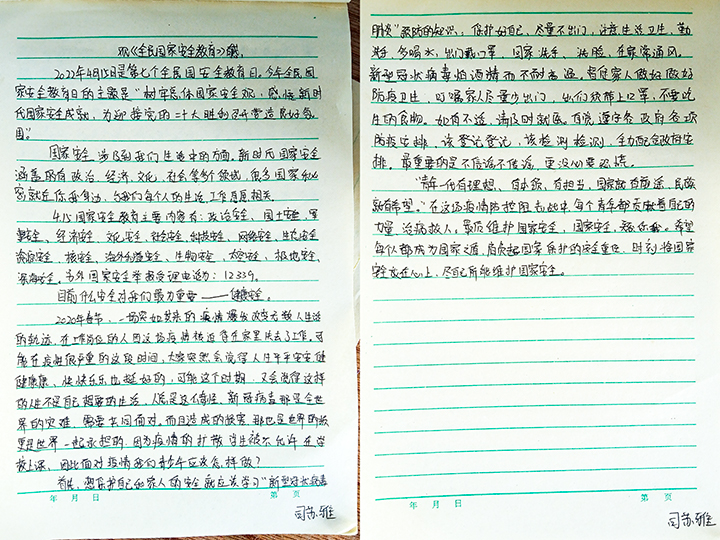 观《全民国家安全教育》感
2022年4月15日是第七个全民国安全教育日。今年全民国
家安全教育日的主题是"树牢总体国家安全观，感悟新时
代国家安全成就，为迎接党的二十大胜利召开营造良好氛
围"
国家安全涉及到我们生活中的方面。新时代国家安全
涵盖的有政治、经济、文化、社会等多个领域，很多国家秘
密就在你我身边，与我们每个人的生活、工作息息相关。
4.15国家安全教育主要内容有：政治安全、国土安全、军
事安全、经济安全、文化安全、社会安全、科技安全、网络安全、生态安全
资源安全、核安全、海外利益安全、生物安全、太空安全、极地安全、
深海安全。另外国家安全举报受理电话为：12339。
目前什么安全对我们最为重要——健康安全。
2020年春节，一场突如其来的疫情爆发改变无数人生活
的轨迹，在工作岗位的人因这场疫情被迫待在家里失去了工作。可
能在疫情很严重的这段时间，大家突然会觉得人生平平安安健
健康康、快快乐乐也挺好的，可能这个时期，又会觉得这样
的人生不是自己想要的生活。人总是这么奇怪。新冠病毒那是全世
界的灾难，需要共同面对。而且造成的损害，那也是世界的
更是世界一起承担的。因为疫情的扩散学生被不允许在学
校上课，因此面对疫情我们青少年应该怎样做？
首先，想保护自己和家人的安全就应该学习"新型冠状病毒
年 月 日 第 页
司苏雅
肺炎"预防的知识；保护好自己，尽量不出门，注意生活卫生，勤
洗手，多喝水，出门戴口罩，回家洗手、洗脸，在家常通风，
新型冠状病毒怕酒精而不耐高温。督促家人做好做好
防疫卫生，叮嘱家人尽量少出门，出门须带上口罩，不要吃
生的食物。如有不适，请及时就医。自觉遵守各政府各项
防疫安排，该登记登记，该检测检测，全力配合政府安
排。最重要的是不信谣不传谣，更没必要恐慌。
"青年一代有理想、有本领、有担当，国家就有前途，民族
就有希望。"在这场疫情防控阻击战中，每个青年都贡献着自己的
力量，治病救人，最质维护国家安全，国家安全，疑你我。希望
每个人都成为国家之盾，肩负起国家保护的安全重任，时刻将国家
安全放在心上，尽自己所能维护国家安全。
年 月 日 第 页
司苏雅